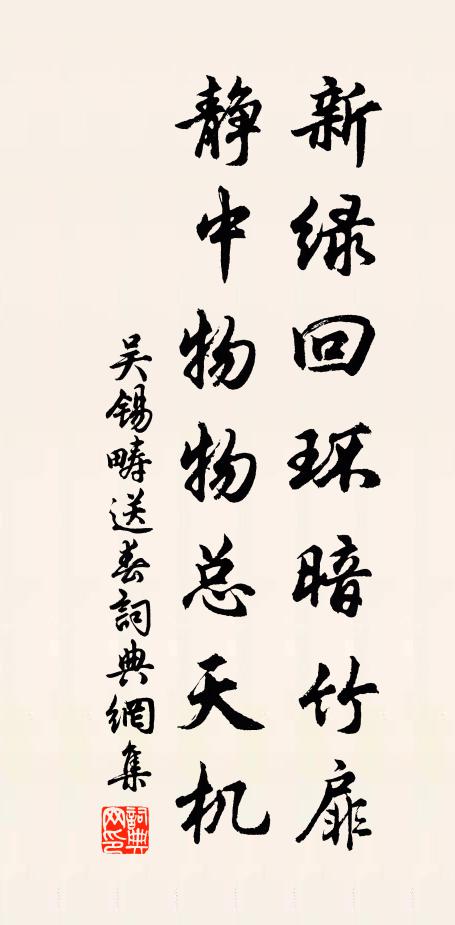 新绿回环暗竹扉
静中物物总天机
吴锡畴送春詞典網集
詞典網印